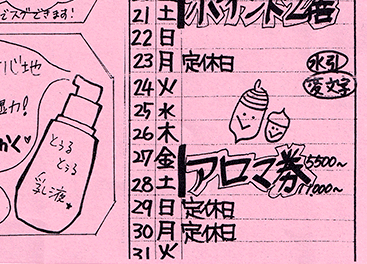 でスグできます!
心地
力!
かく♥
とろる
とろる
乳液
21 土 ポイント2倍
22 日
23 月 定休日 水引
24 火 変文字
25 水
26 木
27 金 アロマ券 5500~
28 土 1000~
29 日 定休日
30 月 定休日
31 火